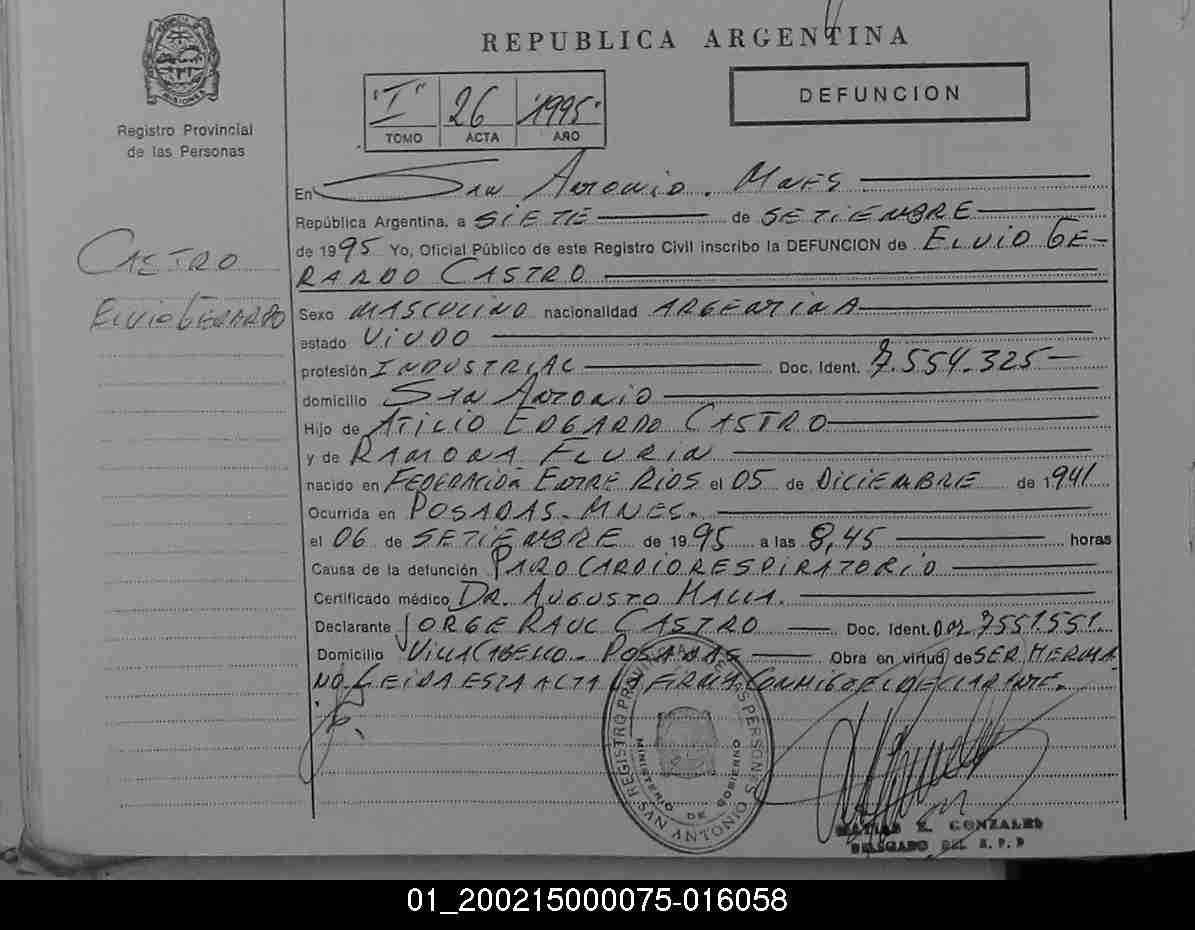 REPUBLICA ARGENTINA
MISIONES
Registro Provincial
de las Personas
"I" 26 "1995"
TOMO ACTA AÑO
DEFUNCION
CASTRO
ELVIO GERARDO
En San Antonio. Mnes
República Argentina, a SIETE de SETIEMBRE
de 1995 Yo, Oficial Público de este Registro Civil inscribo la DEFUNCION de ELVIO GE-
RARDO CASTRO
Sexo MASCULINO nacionalidad ARGENTINA
estado VIUDO
profesión INDUSTRIAL Doc. Ident. 7.554.325
domicilio SAN ANTONIO
Hijo de ATILIO EDGARDO CASTRO
y de RAMONA FLURIN
nacido en FEDERACIÓN ENTRE RIOS el 05 de DICIEMBRE de 1941
Ocurrida en POSADAS. MNES.
el 06 de SETIEMBRE de 1995 a las 8,45 horas
Causa de la defunción PARO CARDIORESPIRATORIO
Certificado médico DR. AUGUSTO
Declarante JORGE RAUL CASTRO Doc. Ident. 7551551
Domicilio VILLA CABELLO - POSADAS Obra en virtud de SER HERMA-
NO. LEIDA ESTA ACTA LA FIRMA CONMIGO EL DECLARANTE.
REGISTRO PROVINCIAL DE LAS PERSONAS
MINISTERIO DE GOBIERNO
SAN ANTONIO
MATIAS E. GONZALES
DELEGADO DEL R. P. P
01_200215000075-016058